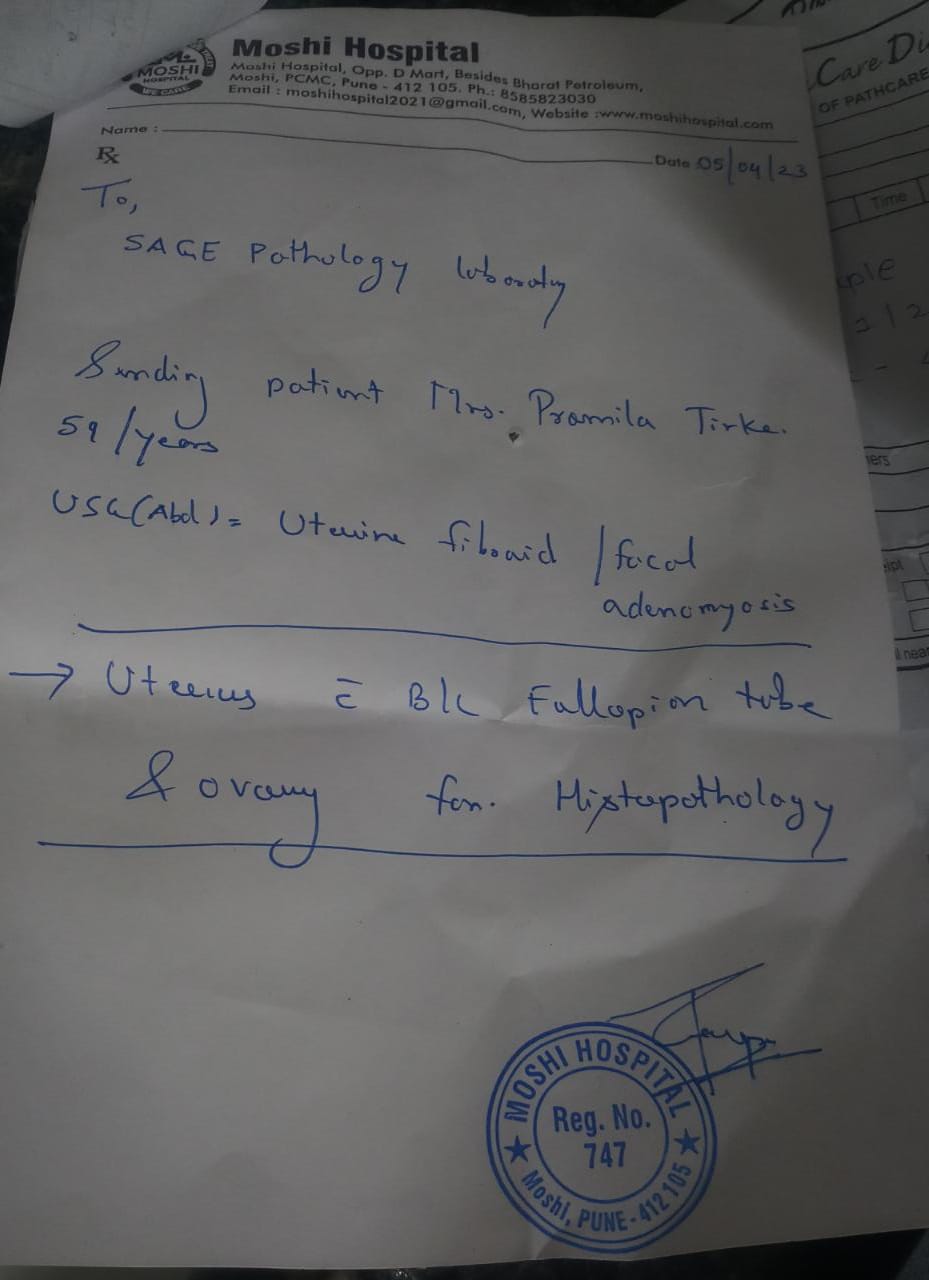 MOSHI
HOSPITAL
WE CARE
Moshi Hospital
Moshi Hospital, Opp. D Mart, Besides Bharat Petroleum,
Moshi, PCMC, Pune - 412 105. Ph.: 8585823030
Email : moshihospital2021@gmail.com, Website :www.moshihospital.com
Name :
Date 05/04/23
Rx
To,
SAGE Pathology laboratory
Sending patient Mrs. Pramila Tirke.
59/years
USG(Abd) = Uterine fibroid / focal
adenomyosis
→ Uterus c̄ B/L Fallopian tube
& ovary for. Histopathology
MOSHI HOSPITAL
Reg. No.
747
Moshi, PUNE-412 105
Care Di
OF PATHCARE
Time
ple